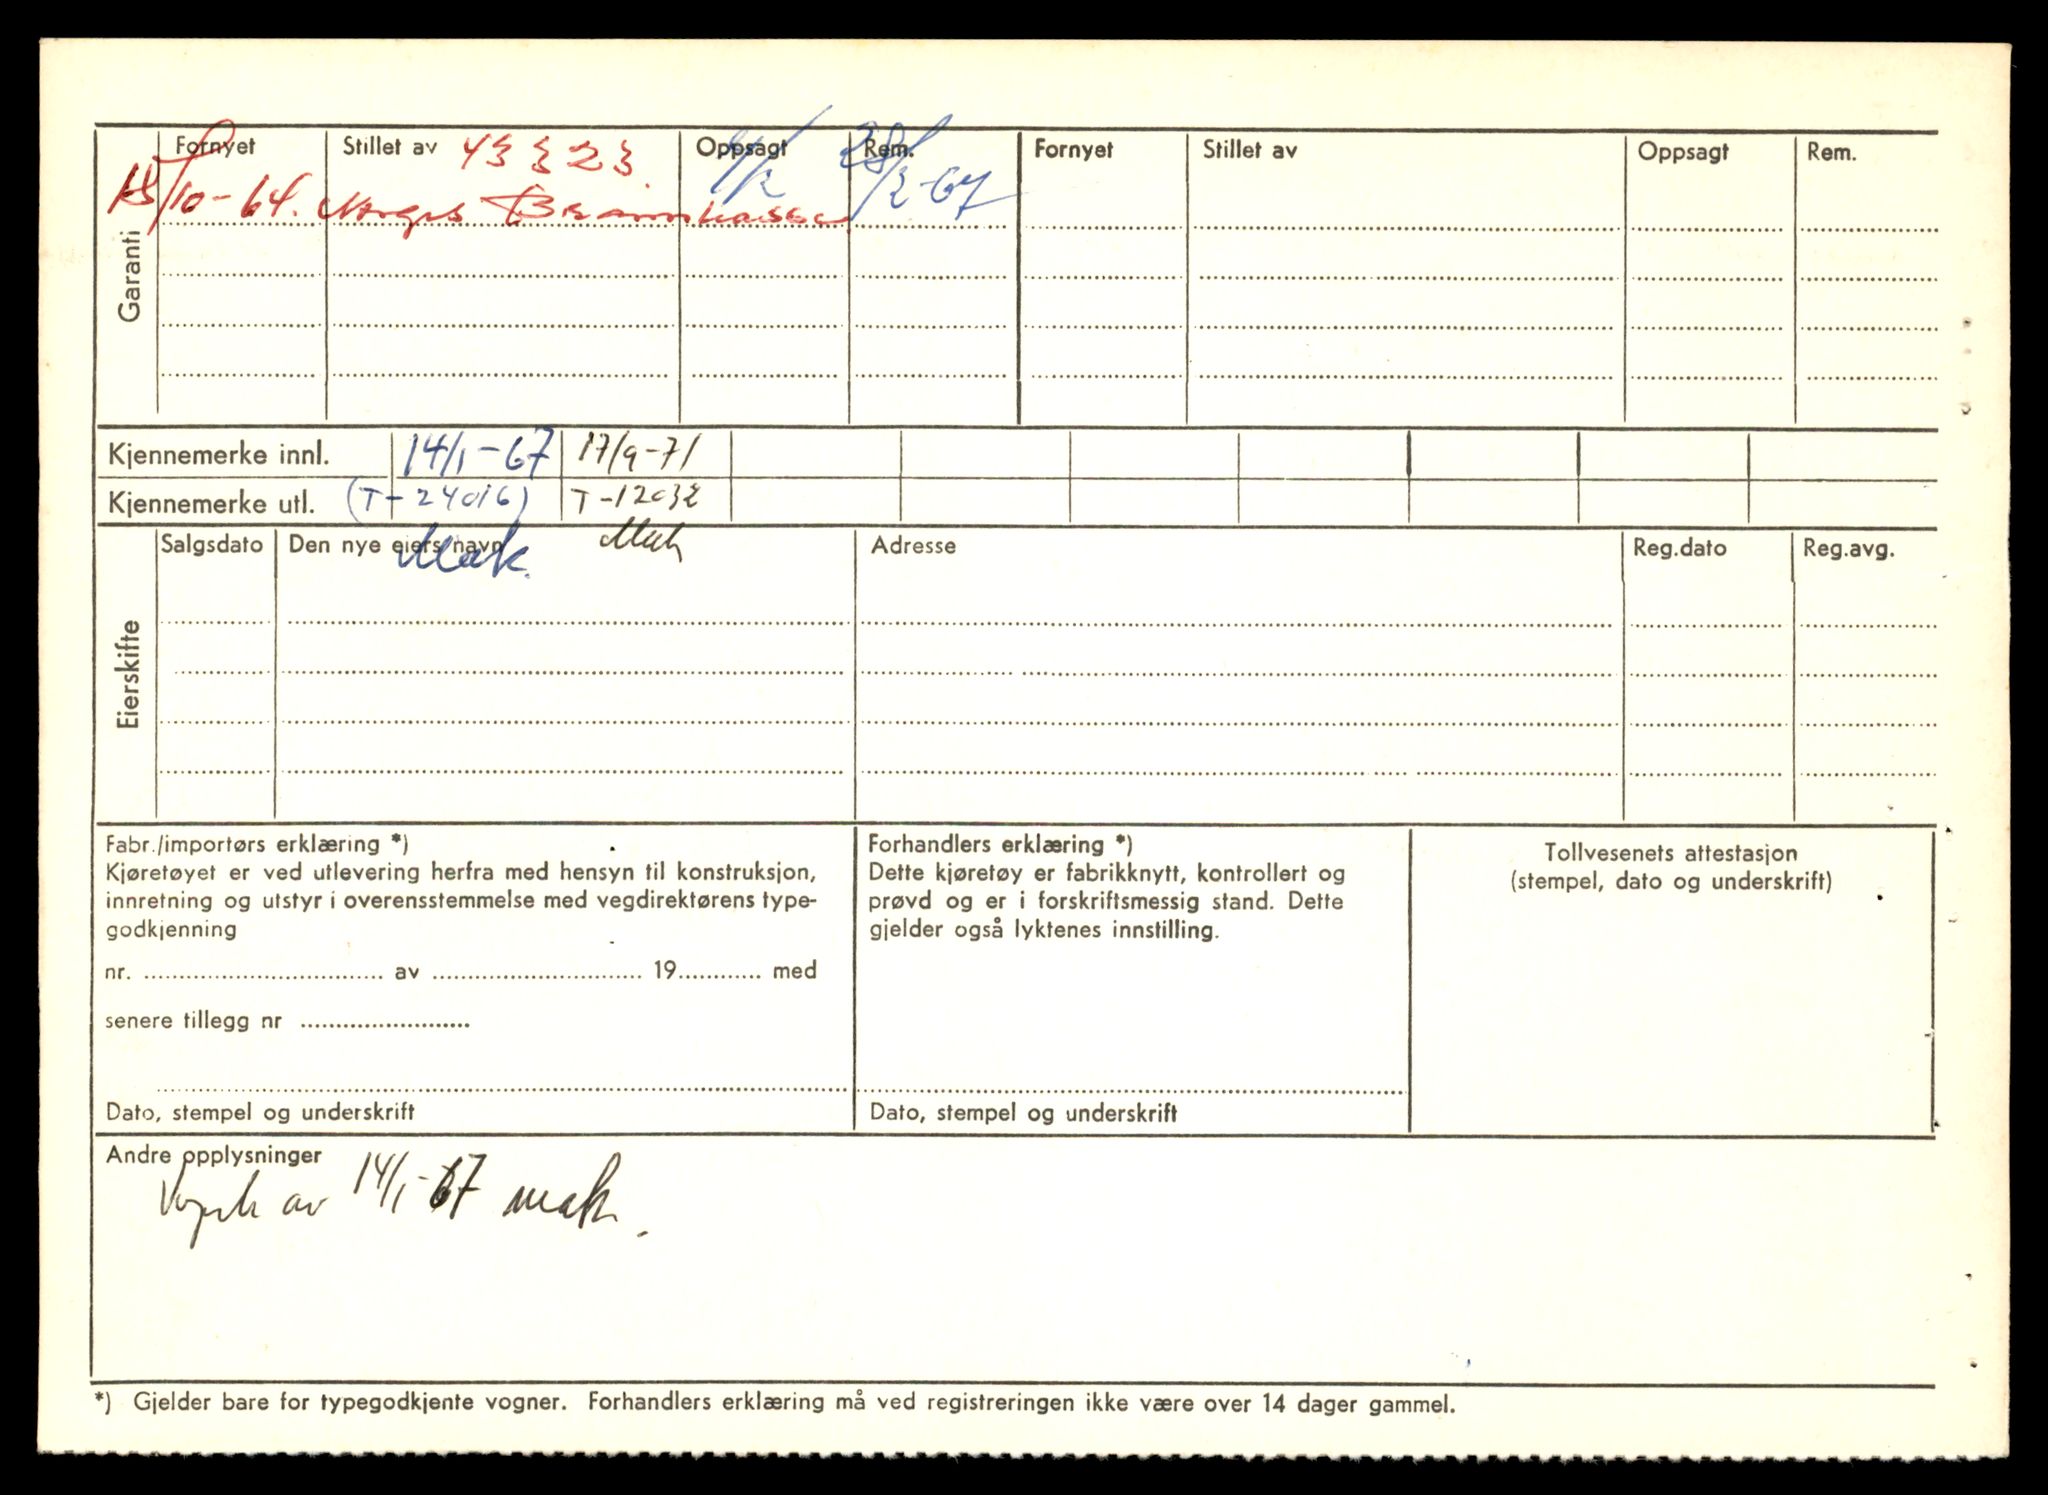 Garanti
Fornyet Stillet av 43323. Oppsagt Rem. Fornyet Stillet av Oppsagt Rem.
/10-64. Norges Brannkasse 28/2-67
Kjennemerke innl. 14/1-67 17/9-71
Kjennemerke utl. (T-24016) T-12032
Eierskifte
Salgsdato Den nye eiers navn Adresse Reg.dato Reg.avg.
Mak. Mak
Fabr./importørs erklæring *)
Kjøretøyet er ved utlevering herfra med hensyn til konstruksjon,
innretning og utstyr i overensstemmelse med vegdirektørens type-
godkjenning
nr. av 19 med
senere tillegg nr
Dato, stempel og underskrift
Forhandlers erklæring *)
Dette kjøretøy er fabrikknytt, kontrollert og
prøvd og er i forskriftsmessig stand. Dette
gjelder også lyktenes innstilling.
Dato, stempel og underskrift
Tollvesenets attestasjon
(stempel, dato og underskrift)
Andre opplysninger
av 14/1-67 mak.
*) Gjelder bare for typegodkjente vogner. Forhandlers erklæring må ved registreringen ikke være over 14 dager gammel.